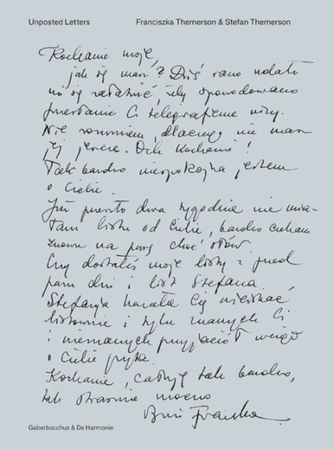 Unposted Letters
Franciszka Themerson & Stefan Themerson
Kochanie moje,
jak się masz? Dziś rano udało
mi się załatwić, żeby spowodowano
przesłanie Ci telegraficzne wizy.
Nie rozumiem, dlaczego nie masz
jej jeszcze. Och kochanie!
Tak bardzo niespokojna jestem
o Ciebie.
Już prawie dwa tygodnie nie
listu od Ciebie, bardzo czekam
znowu na parę choć słów.
Czy dostałeś moje listy z przed
paru dni i list Stefana.
Stefania kazała Cię uściskać,
i tylu znanych Ci
i nieznanych przyjaciół wciąż
o Ciebie pyta.
Kochanie, całuję tak bardzo,
tak strasznie mocno
Franka
Gaberbocchus & De Harmonie